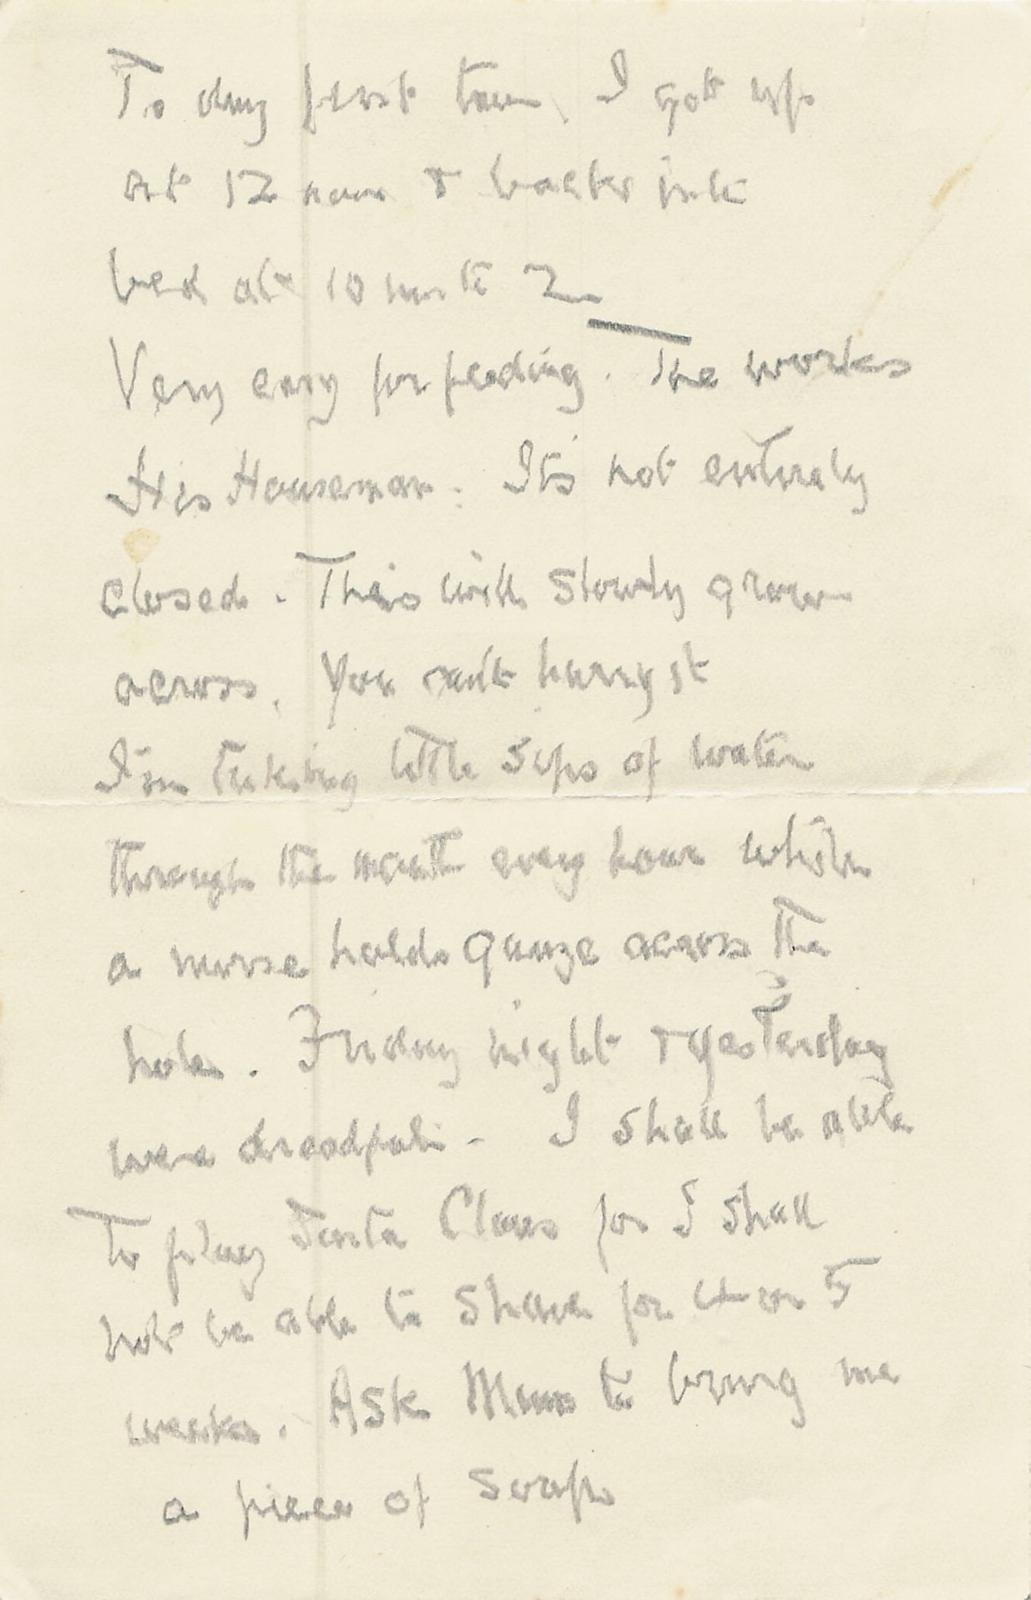 To day first time, I got up
at 12 noon & back into
bed at 10 m to 2
Very easy for feeding. The works
His Houseman. It's not entirely
closed. This will slowly grow
across. You can't hurry it
I'm taking little sips of water
through the mouth every hour while
a nurse holds gauze across the
hole. Friday night & yesterday
were dreadful - I shall be able
To play Santa Claus for I shall
not be able to shave for 4 or 5
weeks. Ask Mum to bring me
a piece of soap